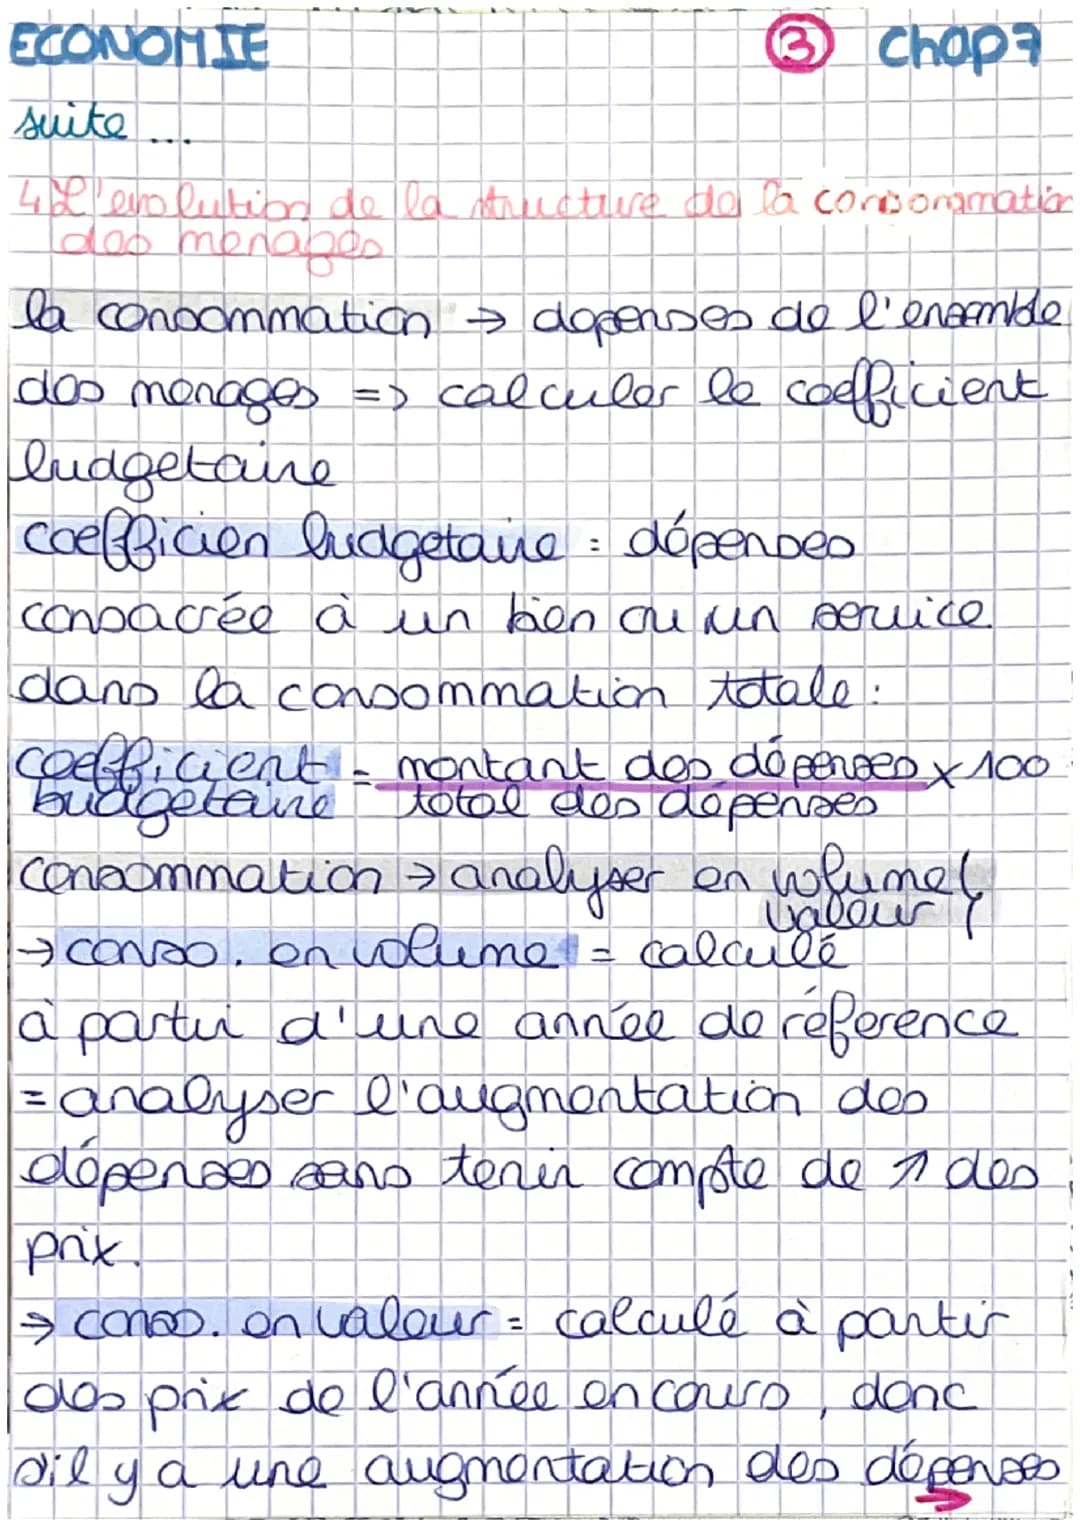 ECONOMIE ③ Chap 7
suite ...
4 L'evolution de la structure de la consommation
des menages
la consommation → dépenses de l'ensemble
des menages => calculer le coefficient
budgetaire
coefficien budgetaire : dépenses
consacrée à un bien ou un service
dans la consommation totale :
coefficient = montant des dépenses x 100
budgétaire total des dépenses
consommation → analyser en volume (
valeur (
→ conso. en volume = calculé
à partir d'une année de réference
= analyser l'augmentation des
dépenses sans tenir compte de ↗ des
prix.
→ conso. en valeur = calculé à partir
des prix de l'année en cours, donc
s'il y a une augmentation des dépenses
→